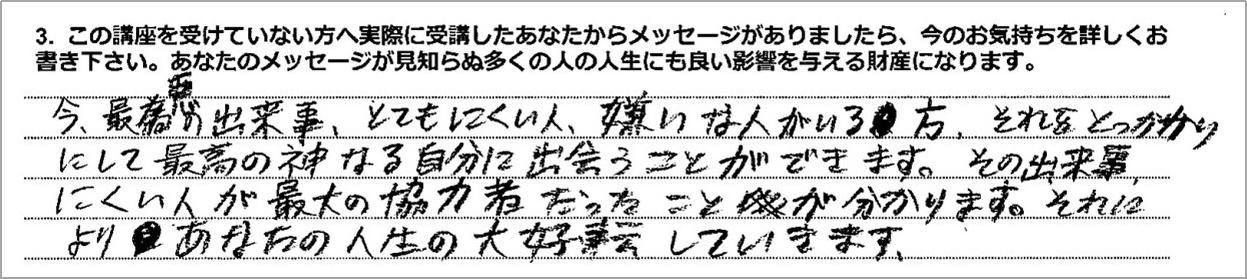 3. この講座を受けていない方へ実際に受講したあなたからメッセージがありましたら、今のお気持ちを詳しくお
書き下さい。あなたのメッセージが見知らぬ多くの人の人生にも良い影響を与える財産になります。
今、最悪の出来事、とてもにくい人、嫌いな人がいる方、それをとっかかり
にして最高の神なる自分に出会うことができます。その出来事、
にくい人が最大の協力者だったことが分かります。それに
よりあなたの人生の大好転していきます。